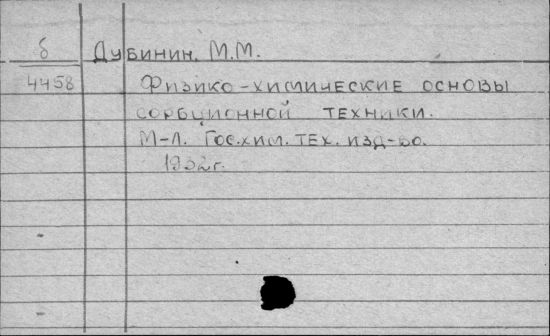 б Дубинин, М.М.
4458 Физико-химические основы
сорбционной техники.
М-Л. Гос.хим.тех.изд-во.
1932г.